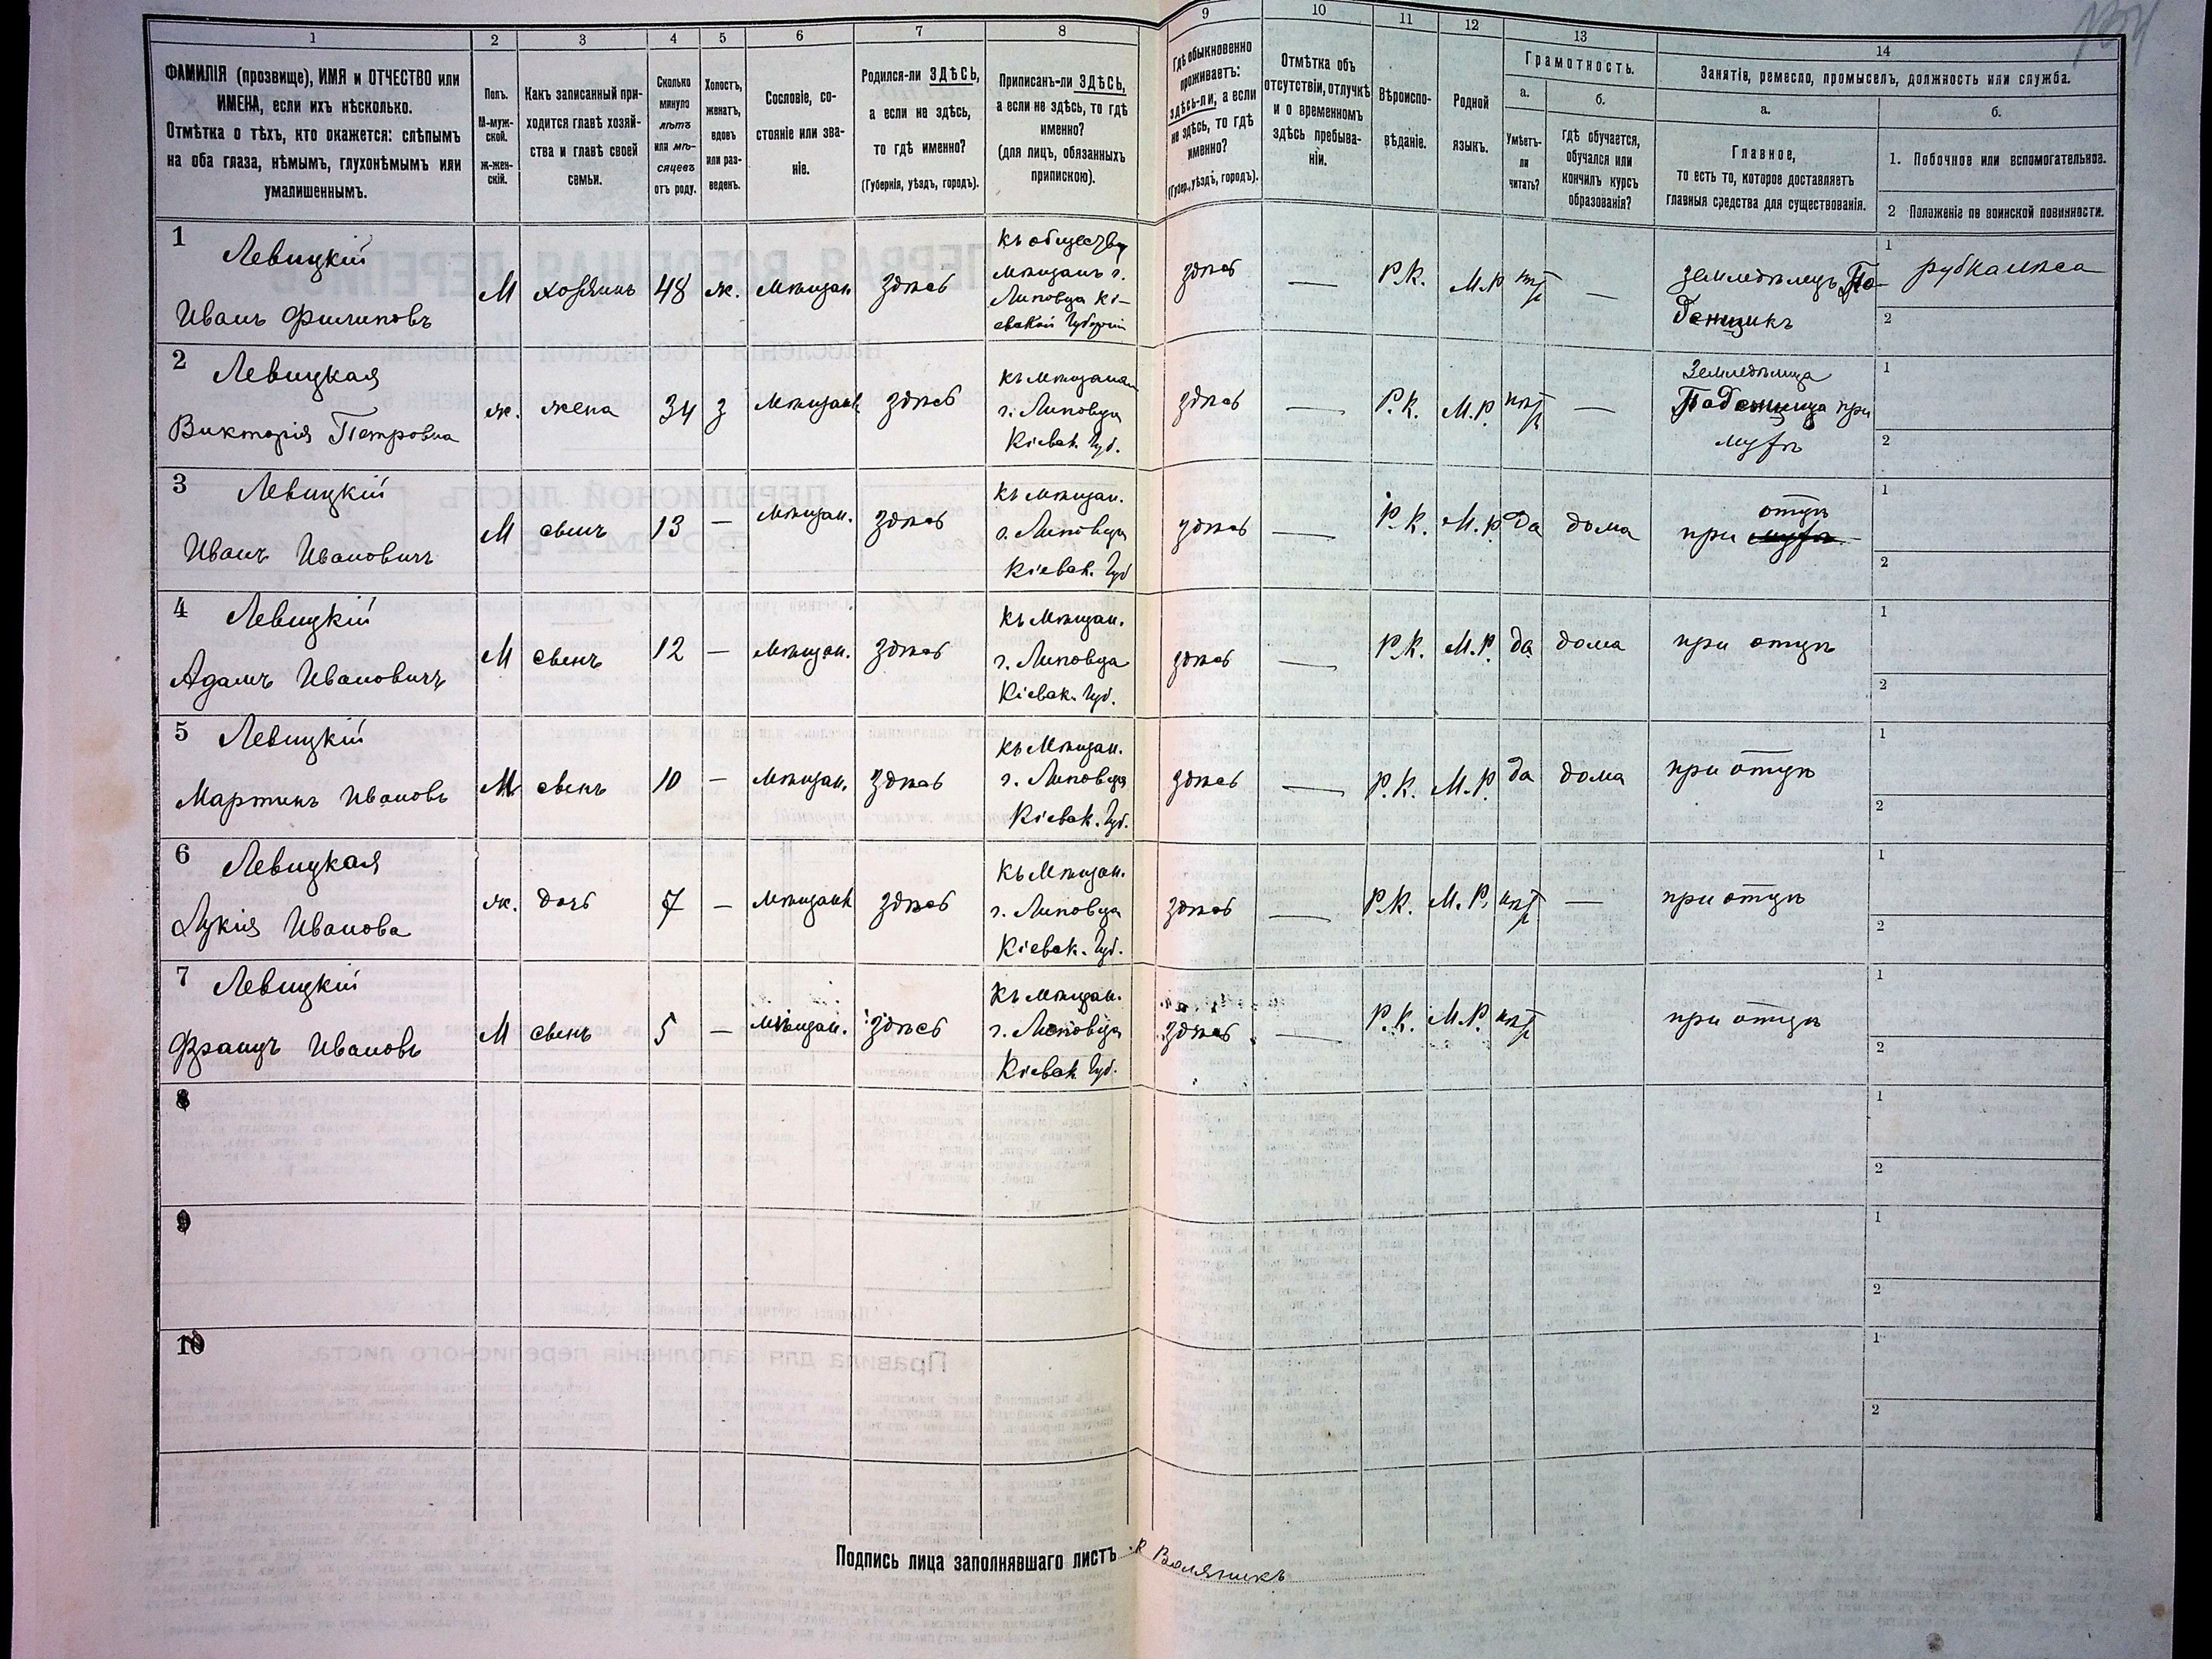 134
1
2
3
4
5
6
7
8
9
10
11
12
13
14
ФАМИЛІЯ (прозвище), ИМЯ и ОТЧЕСТВО или
ИМЕНА, если ихъ нѣсколько.
Отмѣтка о тѣхъ, кто окажется: слѣпымъ
на оба глаза, нѣмымъ, глухонѣмымъ или
умалишеннымъ.
Полъ.
М-муж-
ской.
ж-жен-
скій.
Какъ записанный при-
ходится главѣ хозяй-
ства и главѣ своей
семьи.
Сколько
минуло
лѣтъ
или мѣ-
сяцевъ
отъ роду.
Холостъ,
женатъ,
вдовъ
или раз-
веденъ.
Сословіе, со-
стояніе или зва-
ніе.
Родился-ли ЗДѢСЬ,
а если не здѣсь,
то гдѣ именно?
(Губернія, уѣздъ, городъ).
Приписанъ-ли ЗДѢСЬ,
а если не здѣсь, то гдѣ
именно?
(для лицъ, обязанныхъ
припискою).
Гдѣ обыкновенно
проживаетъ:
здѣсь-ли, а если
не здѣсь, то гдѣ
именно?
(Губер., уѣздъ, городъ).
Отмѣтка объ
отсутствіи, отлучкѣ
и о временномъ
здѣсь пребыва-
ніи.
Вѣроиспо-
вѣданіе.
Родной
языкъ.
Грамотность.
а.
Умѣетъ-
ли
читать?
б.
гдѣ обучается,
обучался или
кончилъ курсъ
образованія?
Занятіе, ремесло, промыселъ, должность или служба.
а.
Главное,
то есть то, которое доставляетъ
главныя средства для существованія.
б.
1. Побочное или вспомогательное.
2 Положеніе по воинской повинности.
1 Левицкій
Иванъ Филиповъ
М
хозяинъ
48
ж.
Мѣщан
здѣсь
Къ обществу
Мѣщанъ г.
Липовца Кі-
евской Губерніи
здѣсь
—
Р.К.
М.Р
нѣтъ
—
Земледѣлецъ По-
денщикъ
1 рубка лѣса
2
2 Левицкая
Викторія Петровна
ж.
жена
34
З
Мѣщанк
здѣсь
Къ Мѣщанам
г. Липовца
Кіевск. Губ.
здѣсь
—
Р.К.
М.Р.
нѣтъ
—
Земледѣлица
Поденщица при
мужѣ
1
2
3 Левицкій
Иванъ Ивановичъ
М
сынъ
13
—
Мѣщан.
здѣсь
Къ Мѣщан.
г. Липовца
Кіевск. Губ
здѣсь
—
Р.К.
М.Р.
да
дома
отцѣ
при мужѣ
1
2
4 Левицкій
Адамъ Ивановичъ
М
сынъ
12
—
Мѣщан.
здѣсь
Къ Мѣщан.
г. Липовца
Кіевск. Губ.
здѣсь
—
Р.К.
М.Р.
да
дома
при отцѣ
1
2
5 Левицкій
Мартинъ Ивановъ
М
сынъ
10
—
Мѣщан.
здѣсь
Къ Мѣщан.
г. Липовца
Кіевск. Губ.
здѣсь
—
Р.К.
М.Р.
да
дома
при отцѣ
1
2
6 Левицкая
Лукія Иванова
ж.
дочь
7
—
Мѣщанк
здѣсь
Къ Мѣщан.
г. Липовца
Кіевск. Губ.
здѣсь
—
Р.К.
М.Р.
нѣтъ
—
при отцѣ
1
2
7 Левицкій
Францъ Ивановъ
М
сынъ
5
—
Мѣщан.
здѣсь
Къ Мѣщан.
г. Липовца
Кіевск. Губ.
здѣсь
—
Р.К.
М.Р.
нѣтъ
при отцѣ
1
2
8
1
2
9
1
2
10
1
2
Подпись лица заполнявшаго листъ